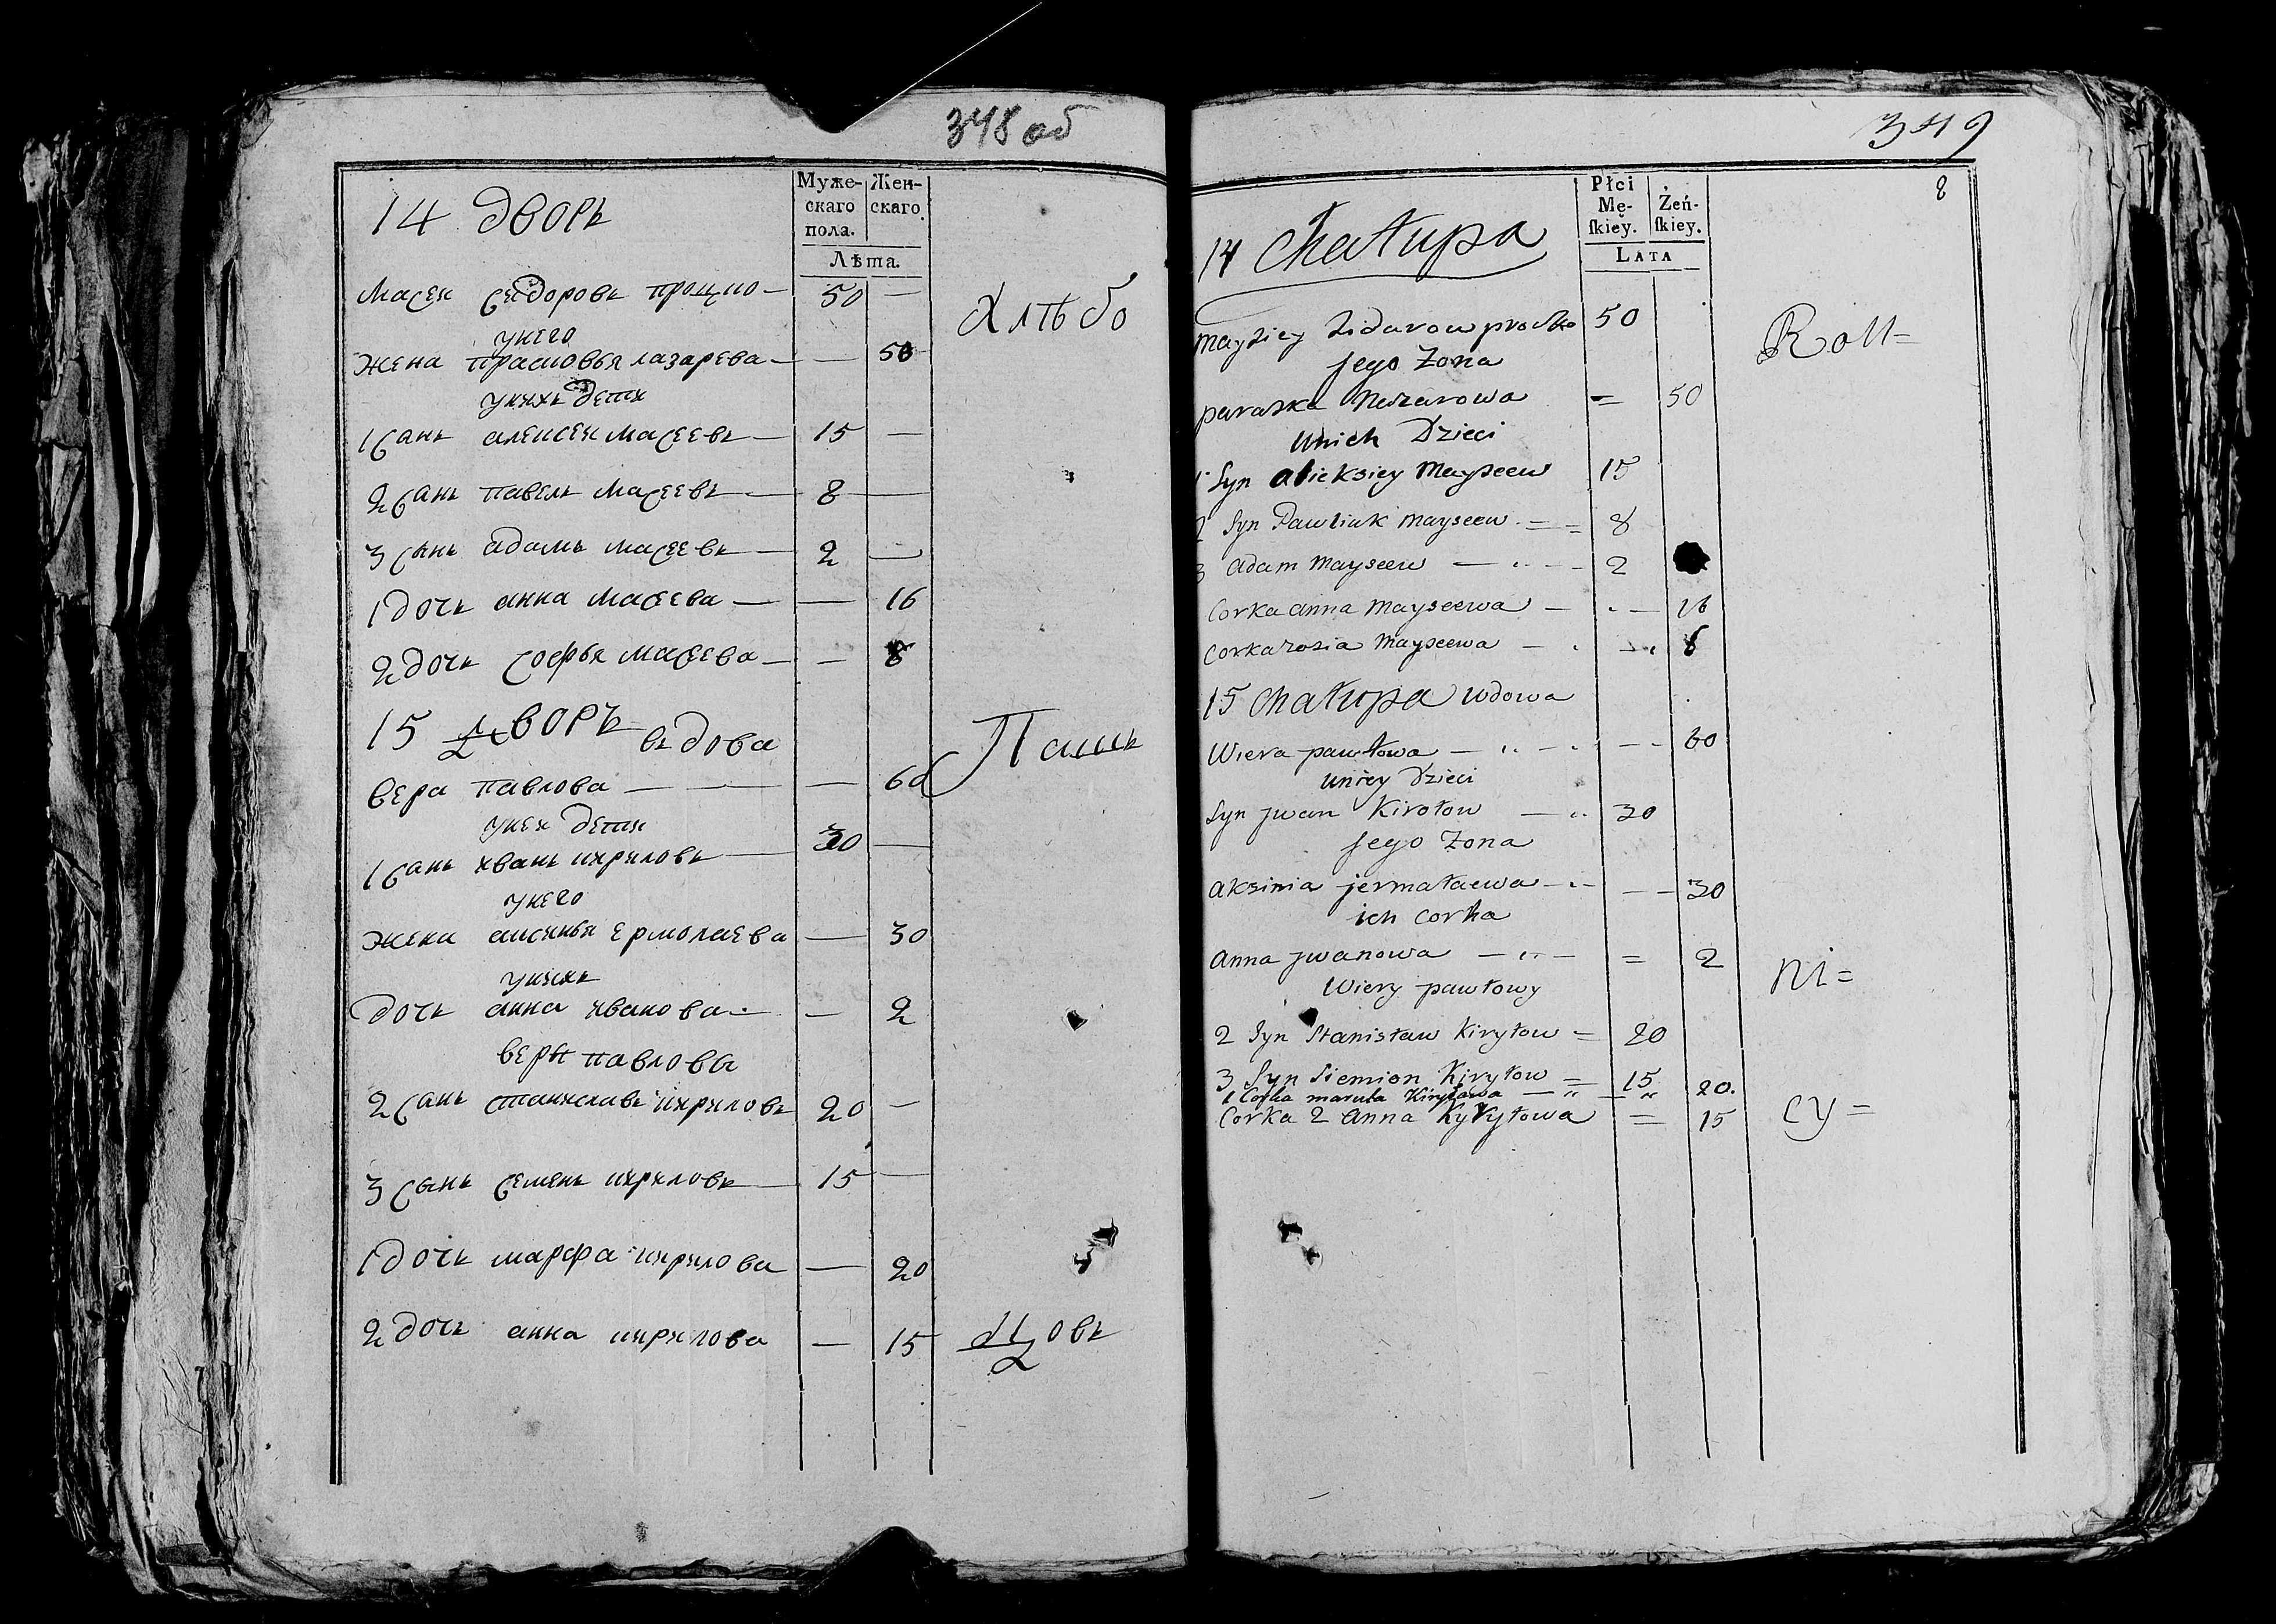 348 об
14 дворъ
Муже-
скаго
пола.
Жен-
скаго
Лѣта.
масей сидоровъ 50 —
унего
жена прасковья лазарева — — 50
унихъ дети
1 сынъ алексей масеевъ — 15 —
2 сынъ павелъ масеевъ — 8 —
3 сынъ адамъ масеевъ — 2 —
1 дочь анна масеева — — 16
2 дочь софья масеева — — 8
15 дворъ въдова
вера павлова — — — 60
уней дети
1 сынъ иванъ кириловъ — 30 —
унего
жена аксинья ермолаева — 30
унихъ
дочь анна иванова — — 2
веры павловы
2 сынъ станиславъ кириловъ 20 —
3 сынъ семенъ кириловъ — 15 —
1 дочь марфа кирилова — 20
2 дочь анна кирилова — 15
Хлѣбо
Паш
цовъ
349
8
14 Chałupa
Płci
Mę-
skiey.
Żeń-
skiey.
LATA
Maysiey Sidarow 50
jego żona
paraska Nazarowa = 50
unich Dzieci
1 Syn alieksiey Mayseew 15
2 Syn Pawliuk mayseew — = 8
3 adam mayseew — „ — 2
Corka anna mayseewa — „ — 16
Corka zosia mayseewa — „ — 8
15 Chałupa wdowa
Wiera pawłowa — „ — „ — 60
uniey Dzieci
Syn jwan Kirołow — „ 30
jego żona
aksinia jermałaewa — „ — — 30
ich corka
anna jwanowa — „ — = 2
Wiery pawłowy
2 Syn Stanisław Kiryłow = 20
3 Syn Siemion Kiryłow = 15
1 Corka maruta Kiryławа — „ — „ 20.
Corka 2 anna Kyryłowa = 15
Roll=
ni=
cy=